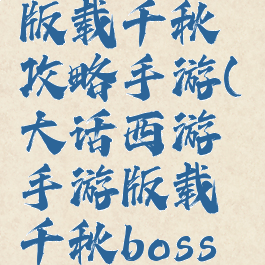 版载千秋
攻略手游(
大话西游
手游版载
千秋boss